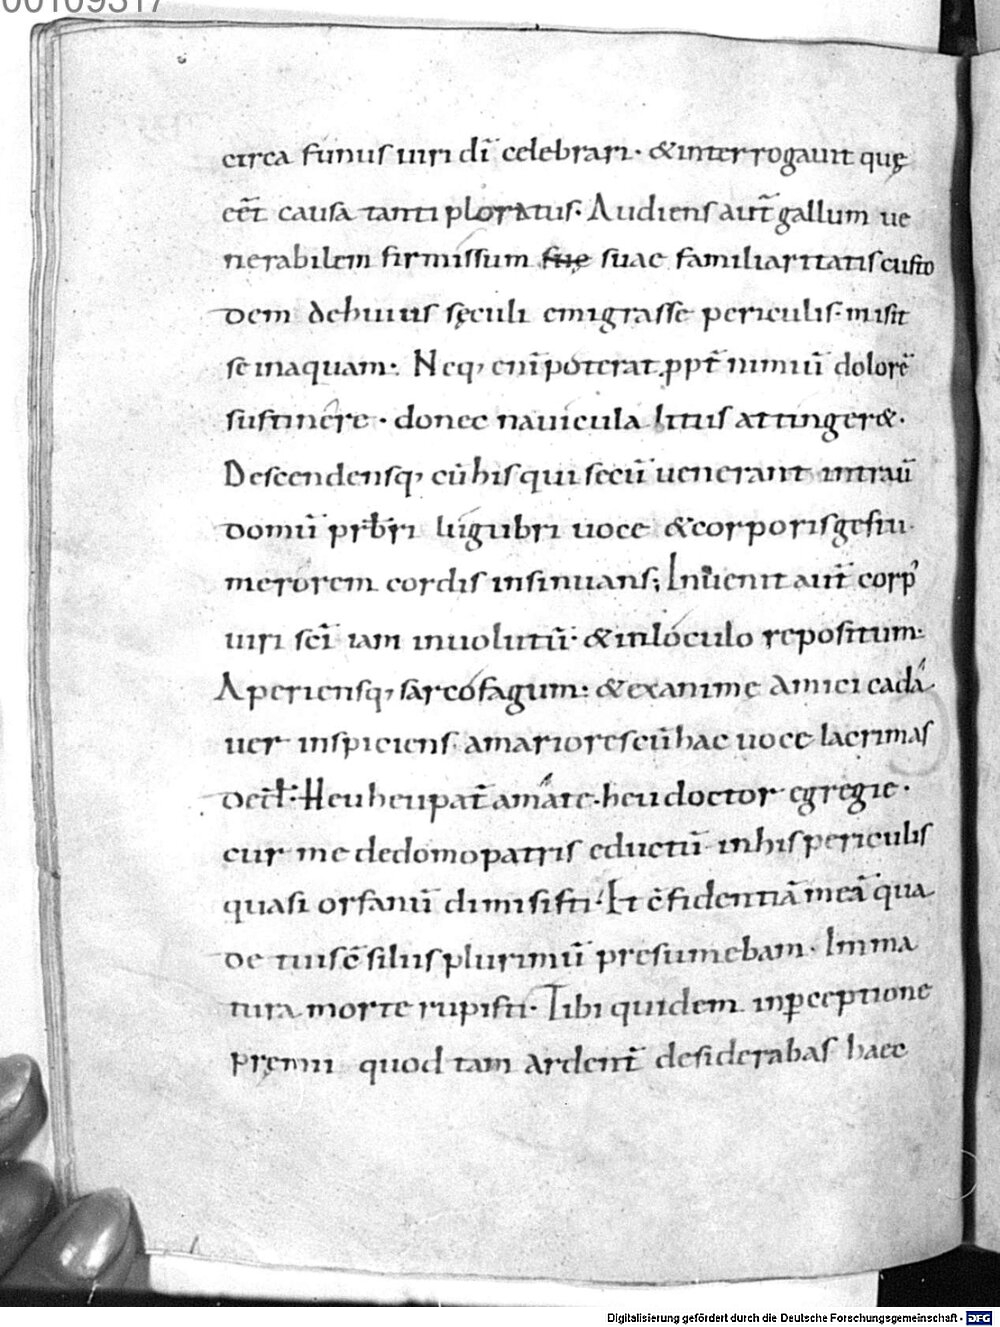 00109317
circa funus uiri dī celebrari· &interrogauit quę
eēt causa tanti ploratus· Audiens aut̄ gallum ue
nerabilem firmissum suae familiaritatis custo
dem dehuius sęculi emigrasse periculis· misit
se inaquam· Neq, enī poterat ppt̄ nimiū dolorē
sustinere· donec nauicula litus attinger&·
Descendensq, cū his qui secū uenerant intrauit
domū prb̄ri lugubri uoce &corporis gestu
merorem cordis insinuans; Inuenit aut̄ corp'
uiri sc̄i iam inuolutū· &inloculo repositum:
Aperiensq, sarcofagum: &exanime amici cadá
uer inspiciens· amariores cū hac uoce lacrimas
dedit: Heu heu pat̄ amate· heu doctor egregie·
cur me dedomo patris eductū inhis periculis
quasi orfanū dimisisti· Et c̄fidentiā meā qua
de tuis c̄siliis plurimū presumebam· Imma
tura morte rupisti· Tibi quidem inp̄ceptione
pręmii quod tam ardent̄ desiderabas haec
Digitalisierung gefördert durch die Deutsche Forschungsgemeinschaft - DFG